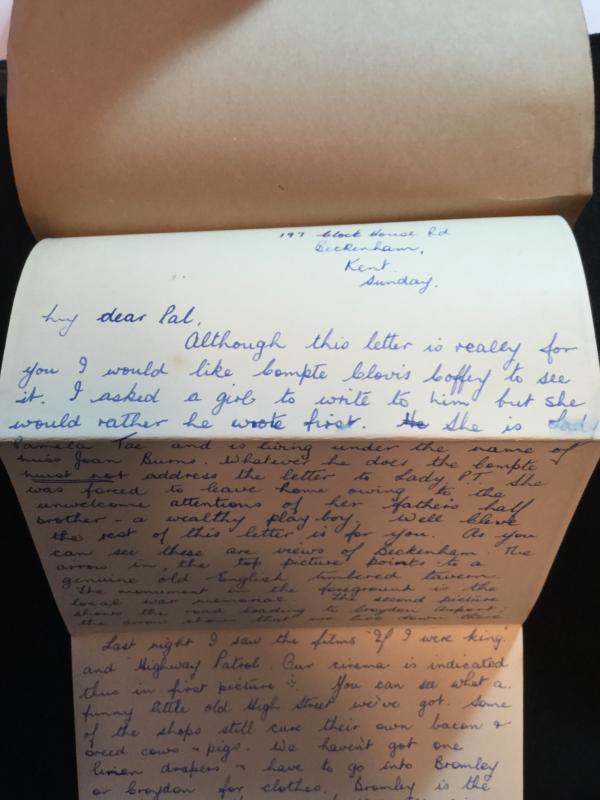 197 Clock House Rd
Beckenham,
Kent.
Sunday.
My dear Pal,
Although this letter is really for
you I would like Compte Clovis Coffey to see
it. I asked a girl to write to him but she
would rather he wrote first. He She is Lady
Pamela Tae and is living under the name of
Miss Joan Burns. Whatever he does the Compte
must not address the letter to Lady P.T. She
was forced to leave home owing to the
unwelcome attentions of her fathers half
brother - a wealthy play boy. Well Cleve
the rest of this letter is for you. As you
can see these are views of Beckenham. The
arrow in the top picture points to a
genuine old English timbered tavern.
The monument in the foreground is the
local war memorial. The second picture
shows the road leading to Croydon Airport.
the arrow shows that we live down there
Last night I saw the films "If I were king"
and "Highway Patrol". Our cinema is indicated
thus in first picture You can see what a
funny little old High Street we've got. Some
of the shops still cure their own bacon &
breed cows & pigs. We haven't got one
linen drapers & have to go into Bromley
or Croydon for clothes. Bromley is the